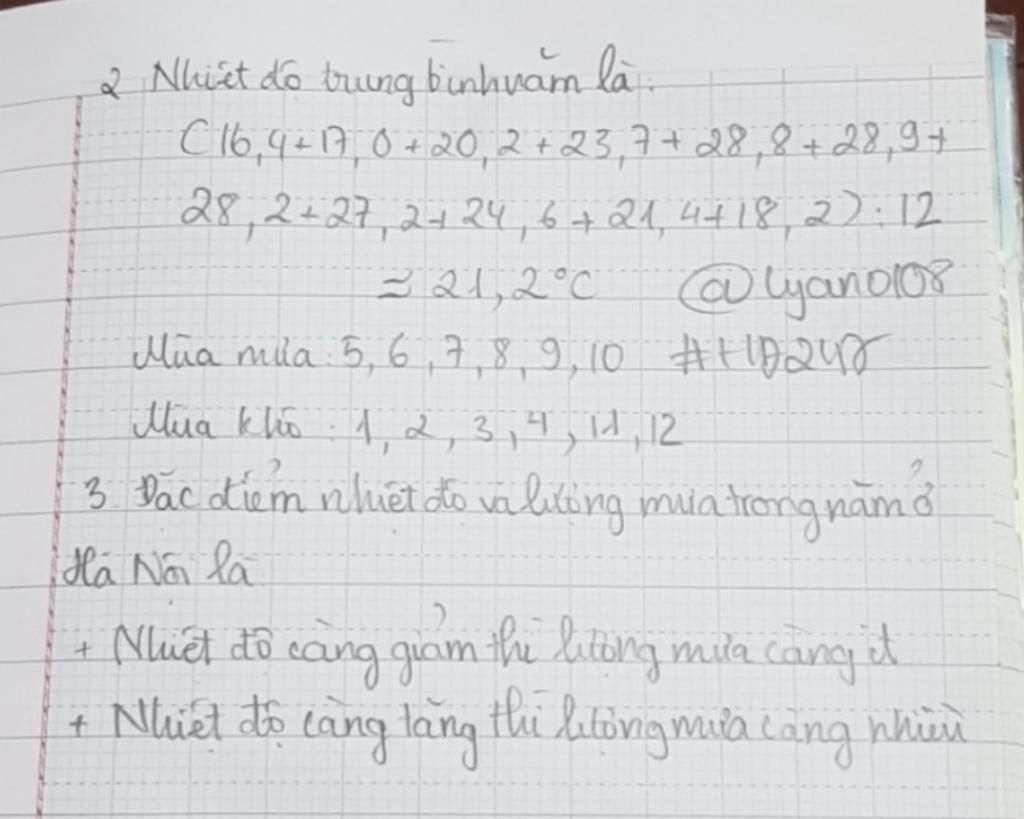 2 Nhiệt độ trung bình năm là:
(16,4+17,0+20,2+23,7+28,8+28,9+
28,2+27,2+24,6+21,4+18,2):12
≈ 21,2°C @lyano108
Mùa mưa: 5, 6, 7, 8, 9, 10 #HD247
Mùa khô: 1, 2, 3, 4, 11, 12
3. Đặc điểm nhiệt độ và lượng mưa trong năm ở
Hà Nội là
+ Nhiệt độ càng giảm thì lượng mưa càng ít
+ Nhiệt độ càng tăng thì lượng mưa càng nhiều